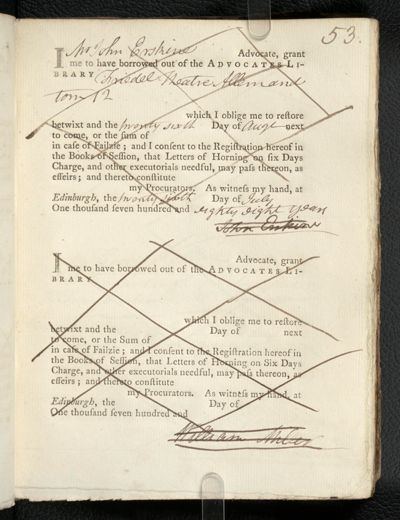 53.
I Mr John Erskine Advocate, grant
me to have borrowed out of the ADVOCATES LI-
BRARY Friedel Theatre Allemand
tom 12
which I oblige me to reſtore
betwixt and the twenty sixth Day of Augt next
to come, or the ſum of
in caſe of Failzie; and I conſent to the Regiſtration hereof in
the Books of Seſſion, that Letters of Horning on ſix Days
Charge, and other executorials needful, may paſs thereon, as
effeirs; and thereto conſtitute
my Procurators. As witneſs my hand, at
Edinburgh, the twenty sixth Day of July
One thouſand ſeven hundred and eighty eight years
John Erskine
I Advocate, grant
me to have borrowed out of the ADVOCATES LI-
BRARY
which I oblige me to reſtore
betwixt and the Day of next
to come, or the Sum of
in caſe of Failzie; and I conſent to the Regiſtration hereof in
the Books of Seſſion, that Letters of Horning on Six Days
Charge, and other executorials needful, may paſs thereon, as
effeirs; and thereto conſtitute
my Procurators. As witneſs my hand, at
Edinburgh, the Day of
One thouſand ſeven hundred and
William